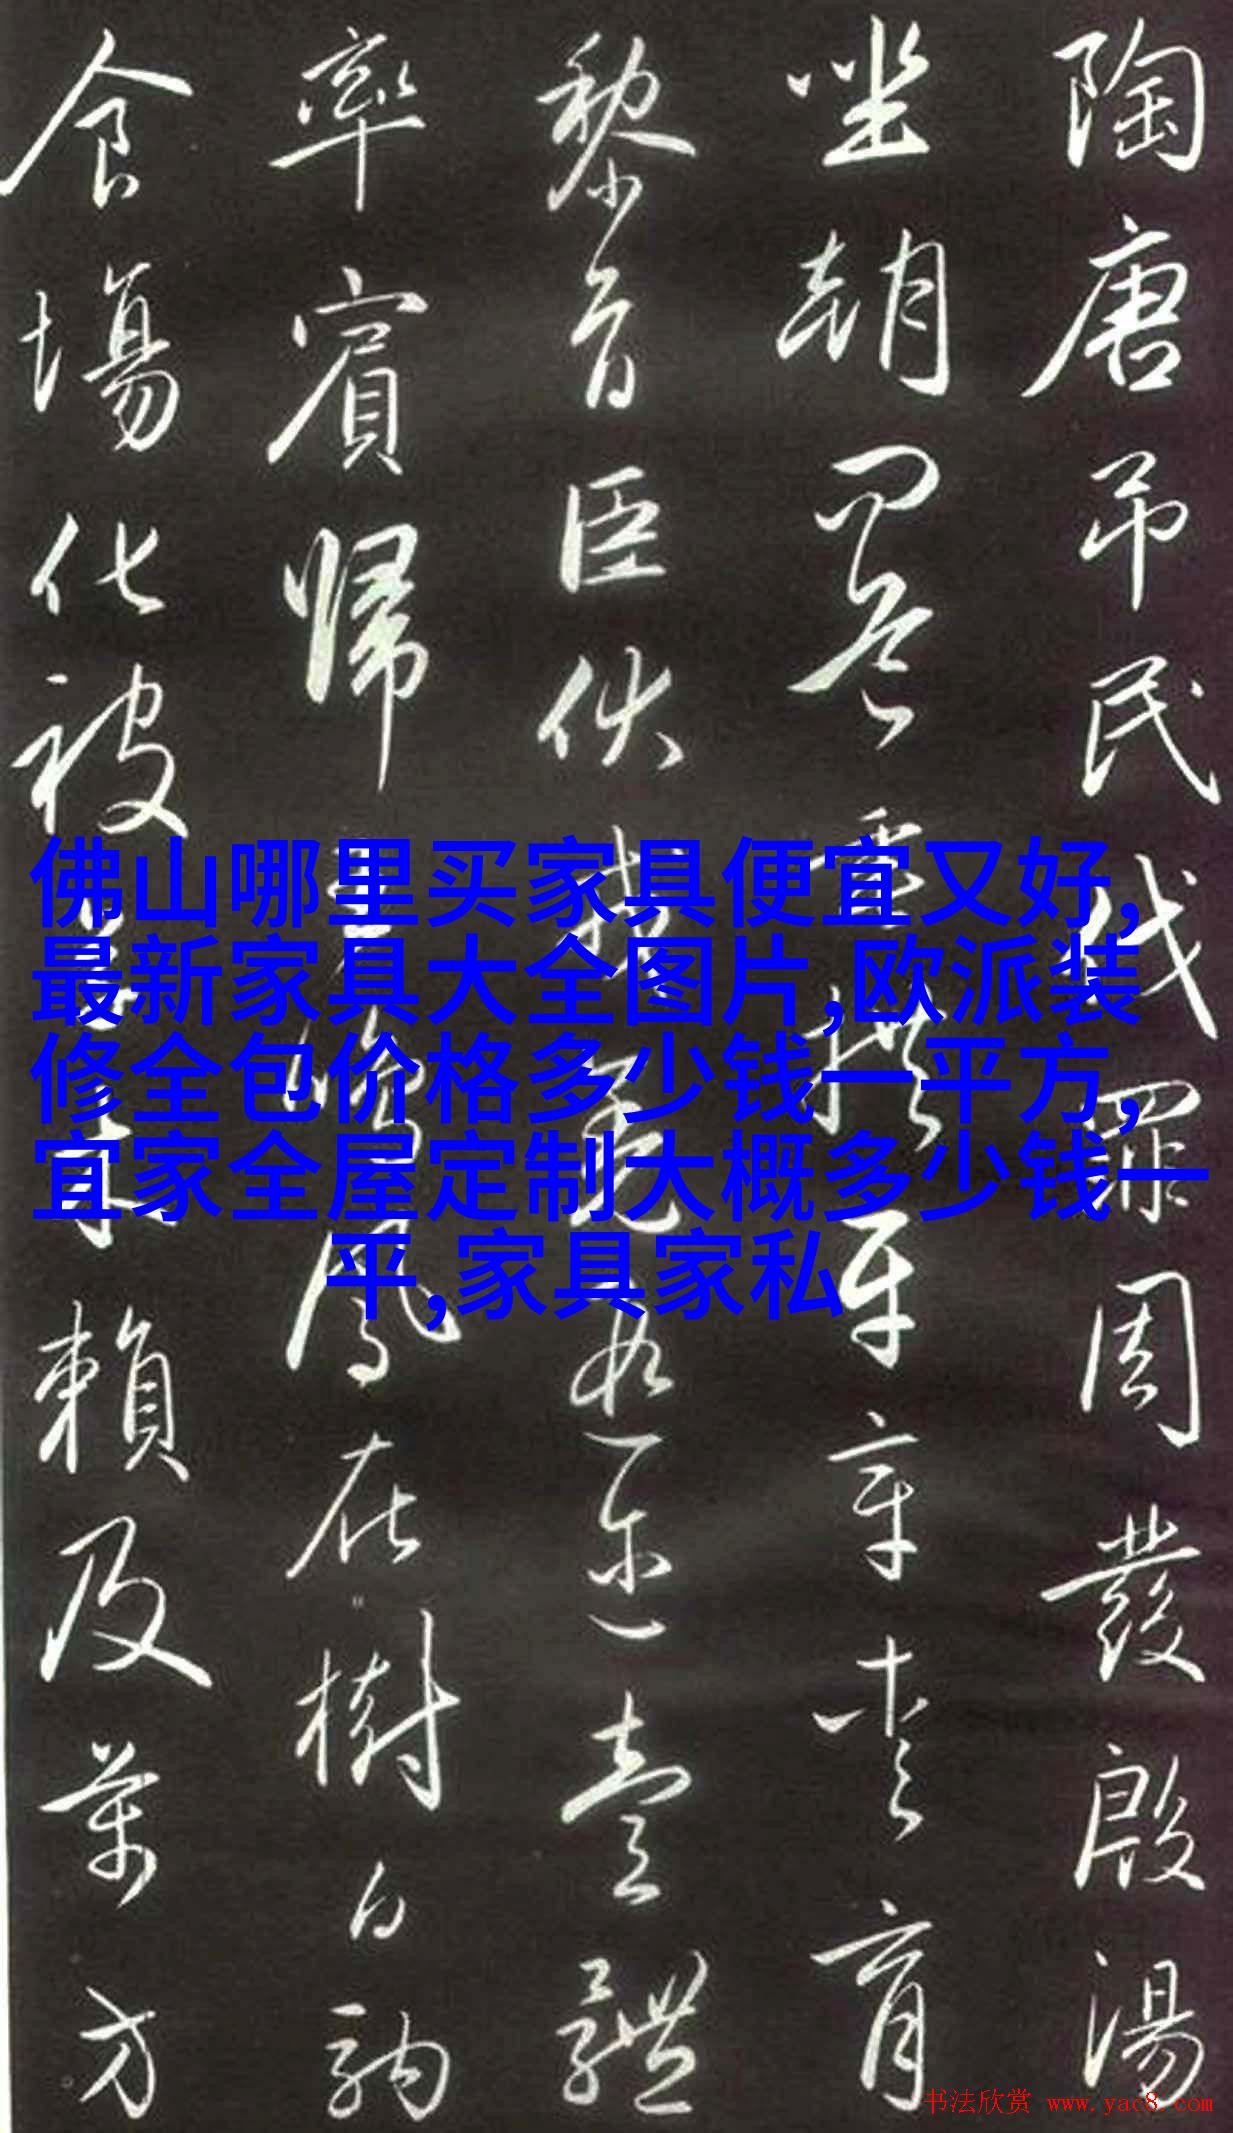 陶唐吊民伐罪周發殷湯
坐朝問道垂拱平章愛育
黎首臣伏戎羌遐迩壹體
率賓歸王鳴鳳在樹白駒
食場化被草木賴及萬方
佛山哪里买家具便宜又好,
最新家具大全图片,欧派装
修全包价格多少钱一平方,
宜家全屋定制大概多少钱一
平,家具家私
书法欣赏 www.yac8.com